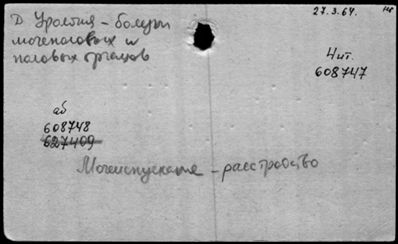 27.3.64.
Д. Урология – болезни
мочеполовых и
половых органов
Чит.
608747
аб
608748
627409
Мочеиспускание – расстройство